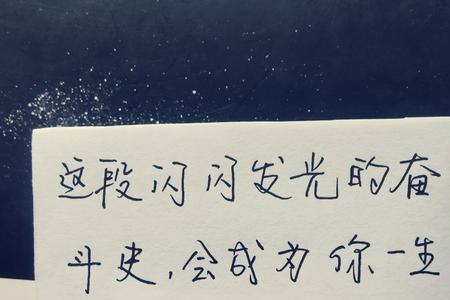 这段闪闪发光的奋
斗史,会成为你一生